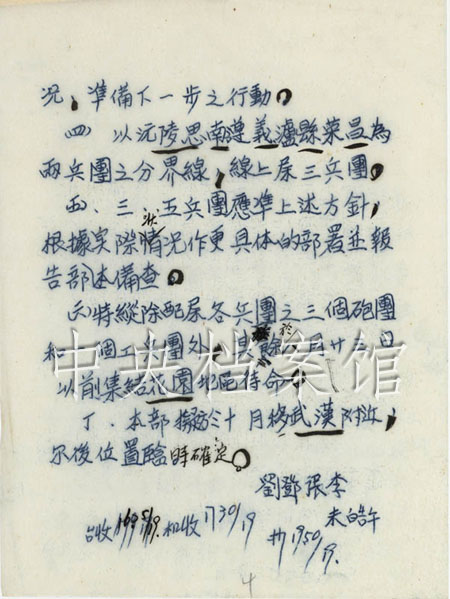 况，準備下一步之行動。
四 以沅陵思南遵義瀘縣榮昌為
兩兵團之分界線，線上屬三兵團。
五、三、五兵團應準上述方針，
根據实際情况作更具体的部署並報
告部本備查。
特縱除配屬各兵團之三個砲團
和 個工兵團外，其餘於 月廿三日
以前集结花園地區待命。
丁、本部擬於十月移武漢附近，
尔後位置臨時確定。
劉鄧張李
未皓午
台收 /19. 和收1730/19 1950/19.
4
中央档案馆